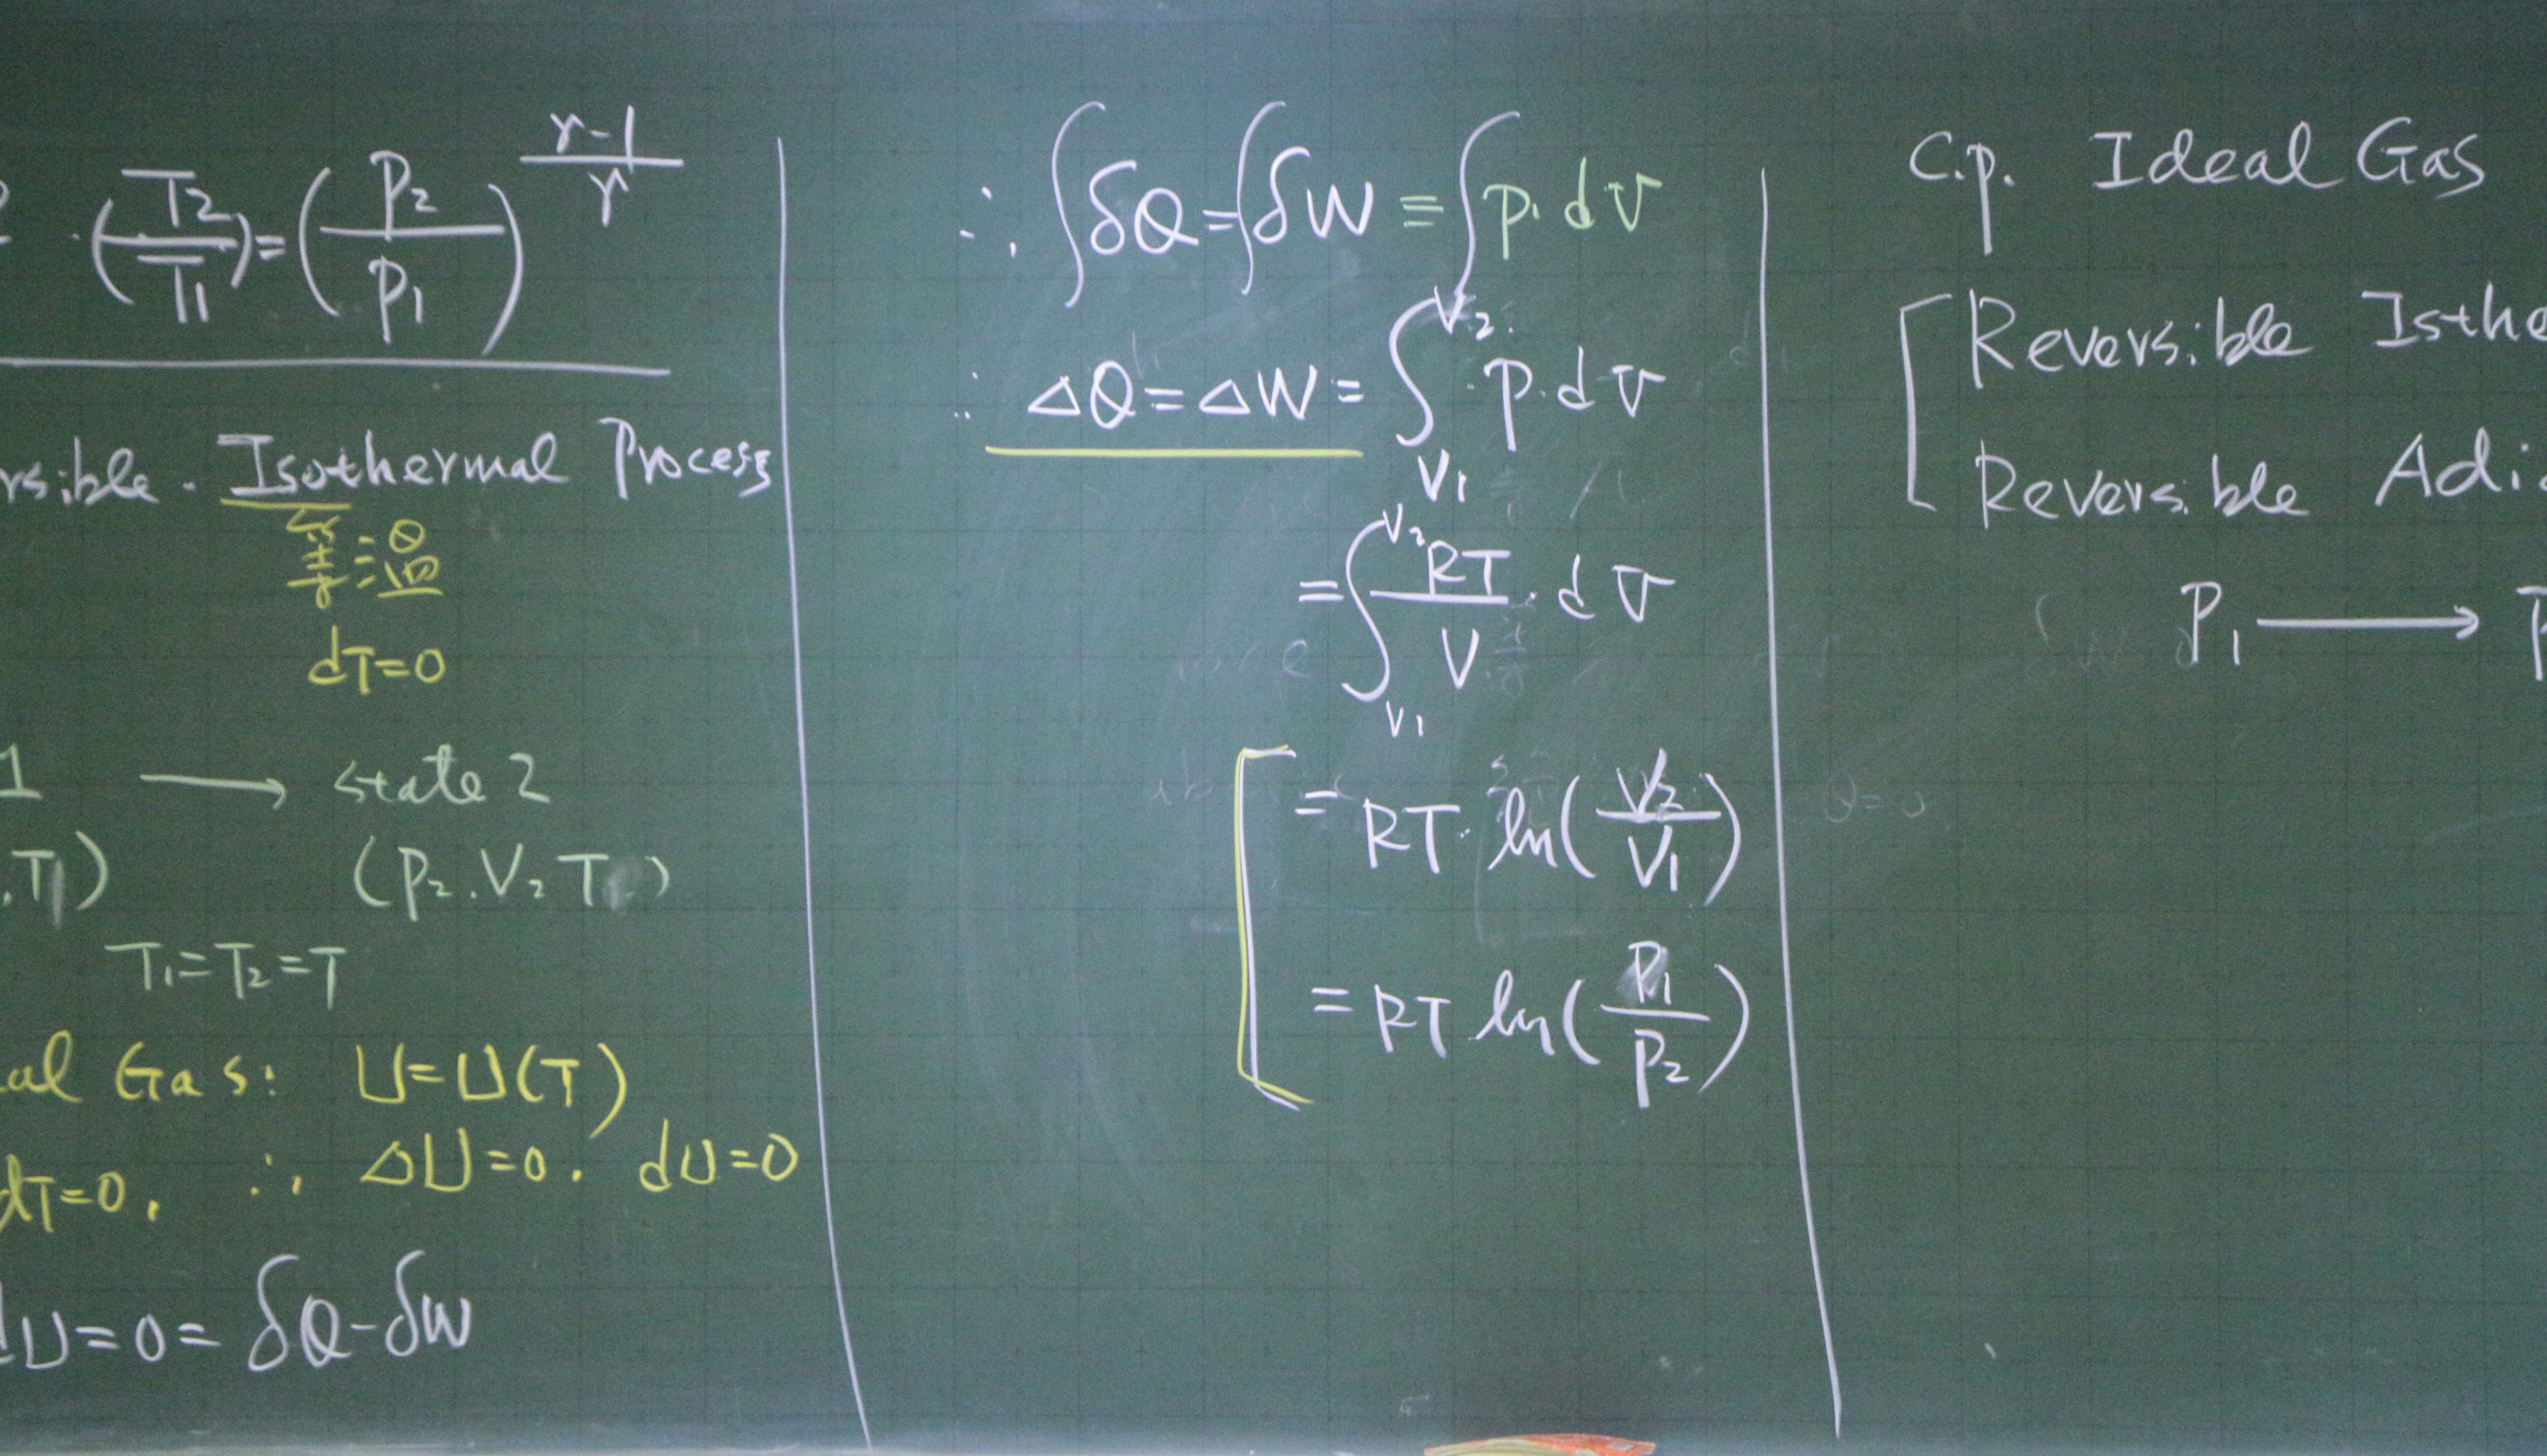 (T2/T1)=(P2/P1)^(γ-1)/γ
rsible. Isothermal Process
等溫
dT=0
1 ⟶ state 2
.T) (P2.V2 T )
T1=T2=T
al Gas: U=U(T)
dT=0. ∴ ΔU=0. dU=0
dU=0=δQ-δW
∴ ∫δQ=∫δW≡∫P.dV
∴ ΔQ=ΔW=∫V1^V2 P.dV
=∫V1^V2 RT/V.dV
=RT.ln(V2/V1)
=RT ln(P1/P2)
C.p. Ideal Gas
Reversible Isthe
Reversible Adia
P1 ⟶ P